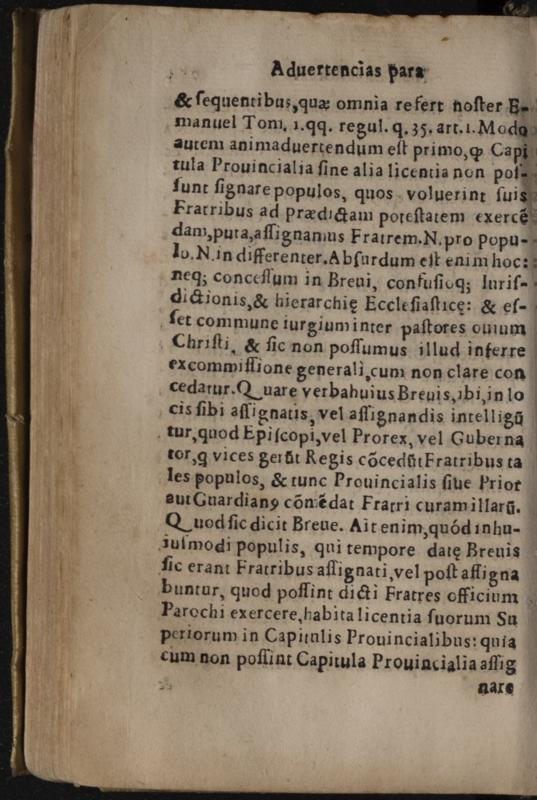 Aduertencias para
& ſequentibus, quæ omnia refert noſter E-
manuel Tom. 1. qq. regul. q. 35. art. 1. Modo
autem animaduertendum eſt primo, ꝙ Capi
tula Prouincialia ſine alia licentia non poſ-
ſunt ſignare populos, quos voluerint ſuis
Fratribus ad prædictam poteſtatem exercẽ
dam, puta, aſſignamus Fratrem. N. pro Popu-
lo. N. indifferenter. Abſurdum eſt enim hoc:
neq; conceſſum in Breui, confuſioq; Iuriſ-
dictionis, & hierarchię Eccleſiaſticę: & eſ-
ſet commune iurgium inter paſtores ouium
Chriſti, & ſic non poſſumus illud inferre
ex commiſſione generali, cum non clare con
cedatur. Quare verba huius Breuis, ibi, in lo
cis ſibi aſſignatis, vel aſſignandis intelligũ
tur, quod Epiſcopi, vel Prorex, vel Guberna
tor, q vices gerũt Regis cõcedũt Fratribus ta
les populos, & tunc Prouincialis ſiue Prior
aut Guardianꝰ cõmẽdat Fratri curam illarũ.
Quod ſic dicit Breue. Ait enim, quód in hu-
iuſmodi populis, qui tempore datę Breuis
ſic erant Fratribus aſſignati, vel poſt aſſigna
buntur, quod poſſint dicti Fratres officium
Parochi exercere, habita licentia ſuorum Su
periorum in Capitulis Prouincialibus: quia
cum non poſſint Capitula Prouincialia aſſig
nare